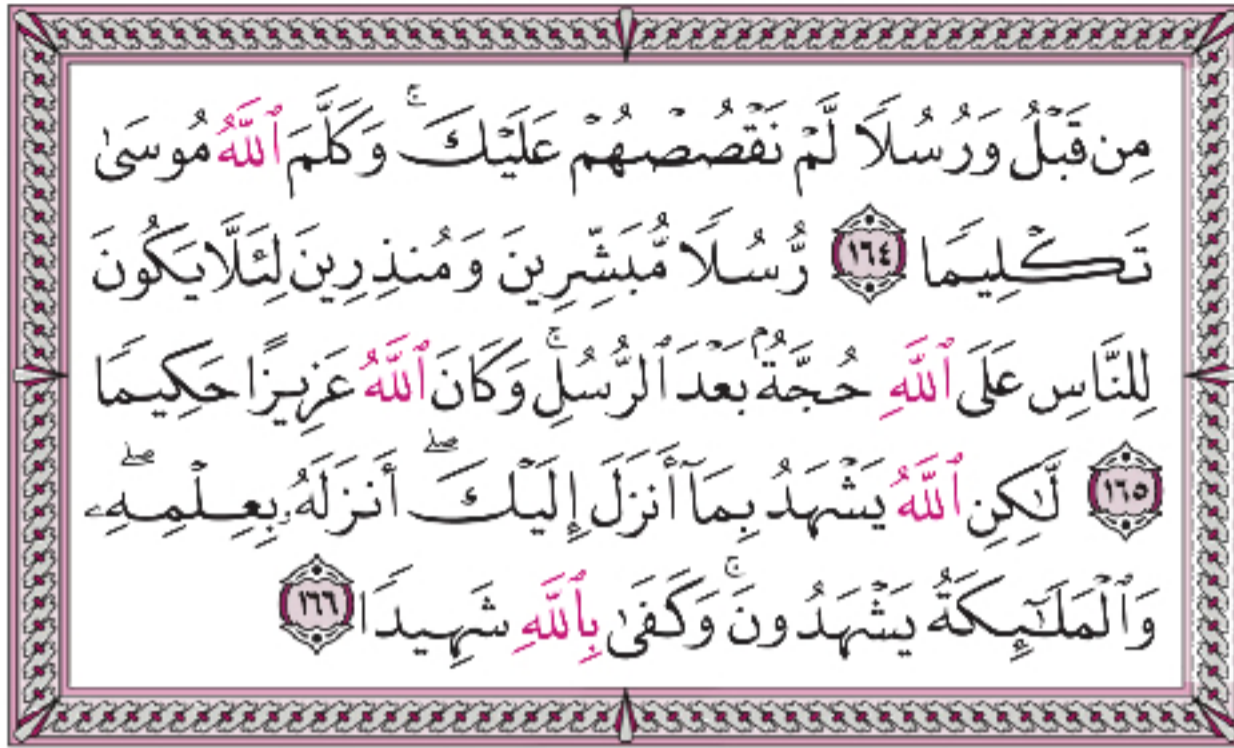 مِن قَبْلُ وَرُسُلًا لَّمْ نَقْصُصْهُمْ عَلَيْكَ ۚ وَكَلَّمَ ٱللَّهُ مُوسَىٰ
تَكْلِيمًا ١٦٤ رُّسُلًا مُّبَشِّرِينَ وَمُنذِرِينَ لِئَلَّا يَكُونَ
لِلنَّاسِ عَلَى ٱللَّهِ حُجَّةٌۢ بَعْدَ ٱلرُّسُلِ ۚ وَكَانَ ٱللَّهُ عَزِيزًا حَكِيمًا
١٦٥ لَّٰكِنِ ٱللَّهُ يَشْهَدُ بِمَآ أَنزَلَ إِلَيْكَ ۖ أَنزَلَهُۥ بِعِلْمِهِۦ ۖ
وَٱلْمَلَـٰٓئِكَةُ يَشْهَدُونَ ۚ وَكَفَىٰ بِٱللَّهِ شَهِيدًا ١٦٦